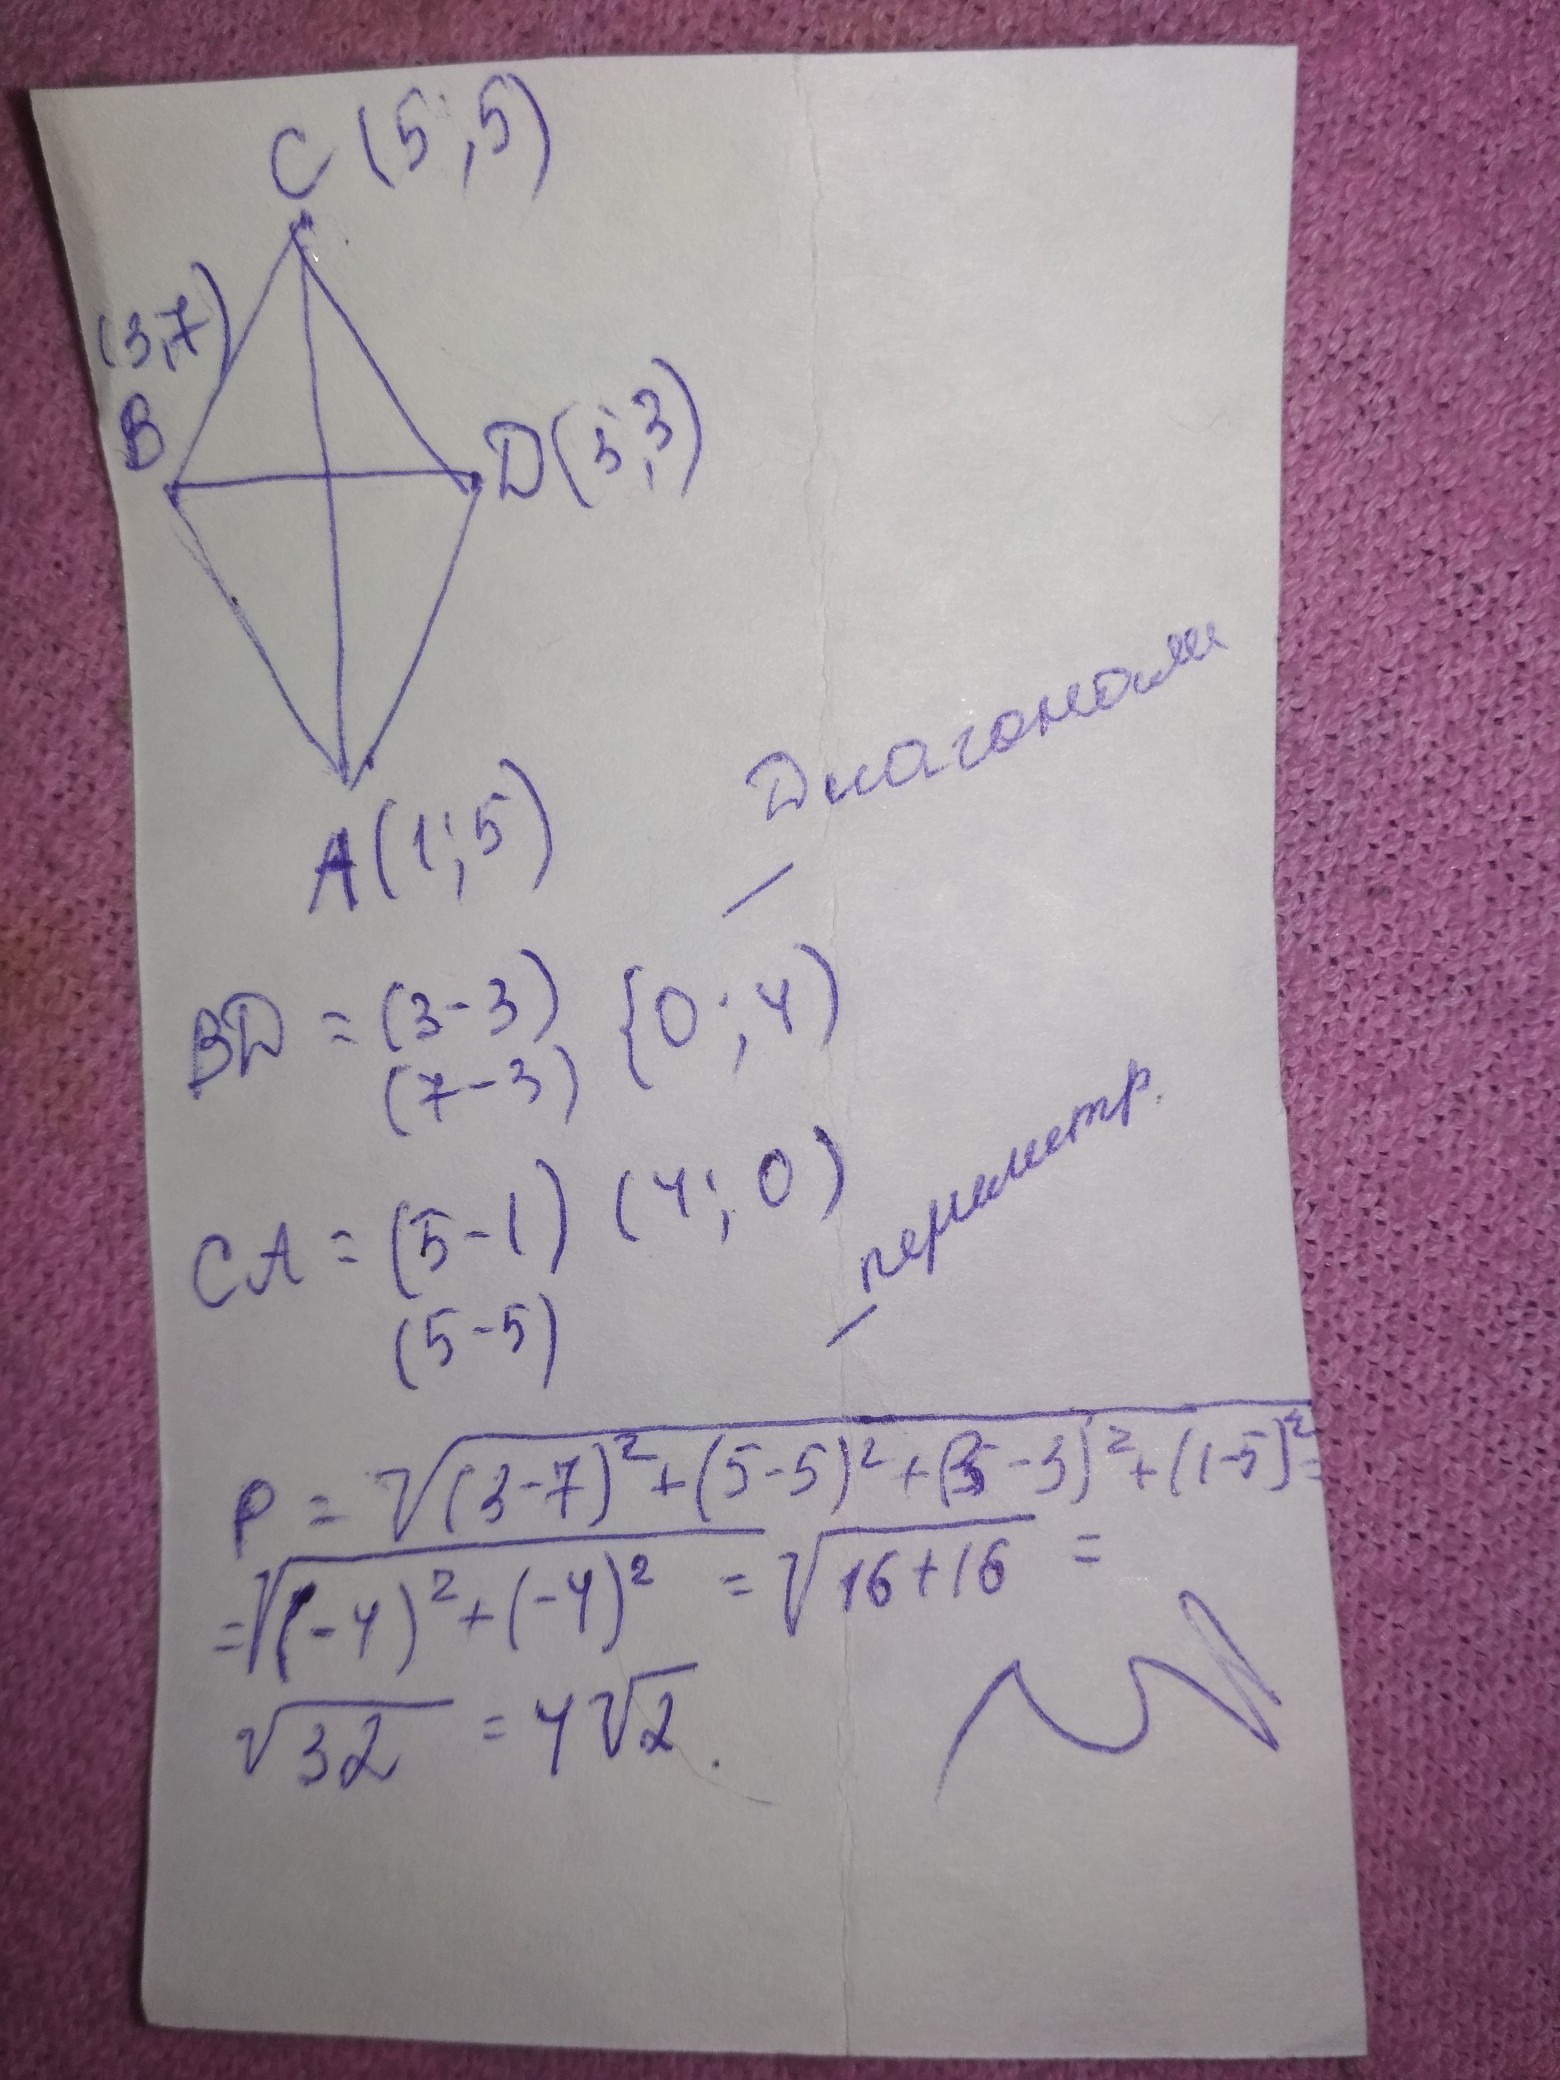 C (5;5)
(3,7)
B
D (3;3)
A (1;5)
Диагонали
BD = (3-3) {0;4)
(7-3)
CA = (5-1) (4;0)
(5-5)
периметр.
P = √(3-7)²+(5-5)²+(3-3)²+(1-5)² =
= √(-4)²+(-4)² = √16+16 =
√32 = 4√2.